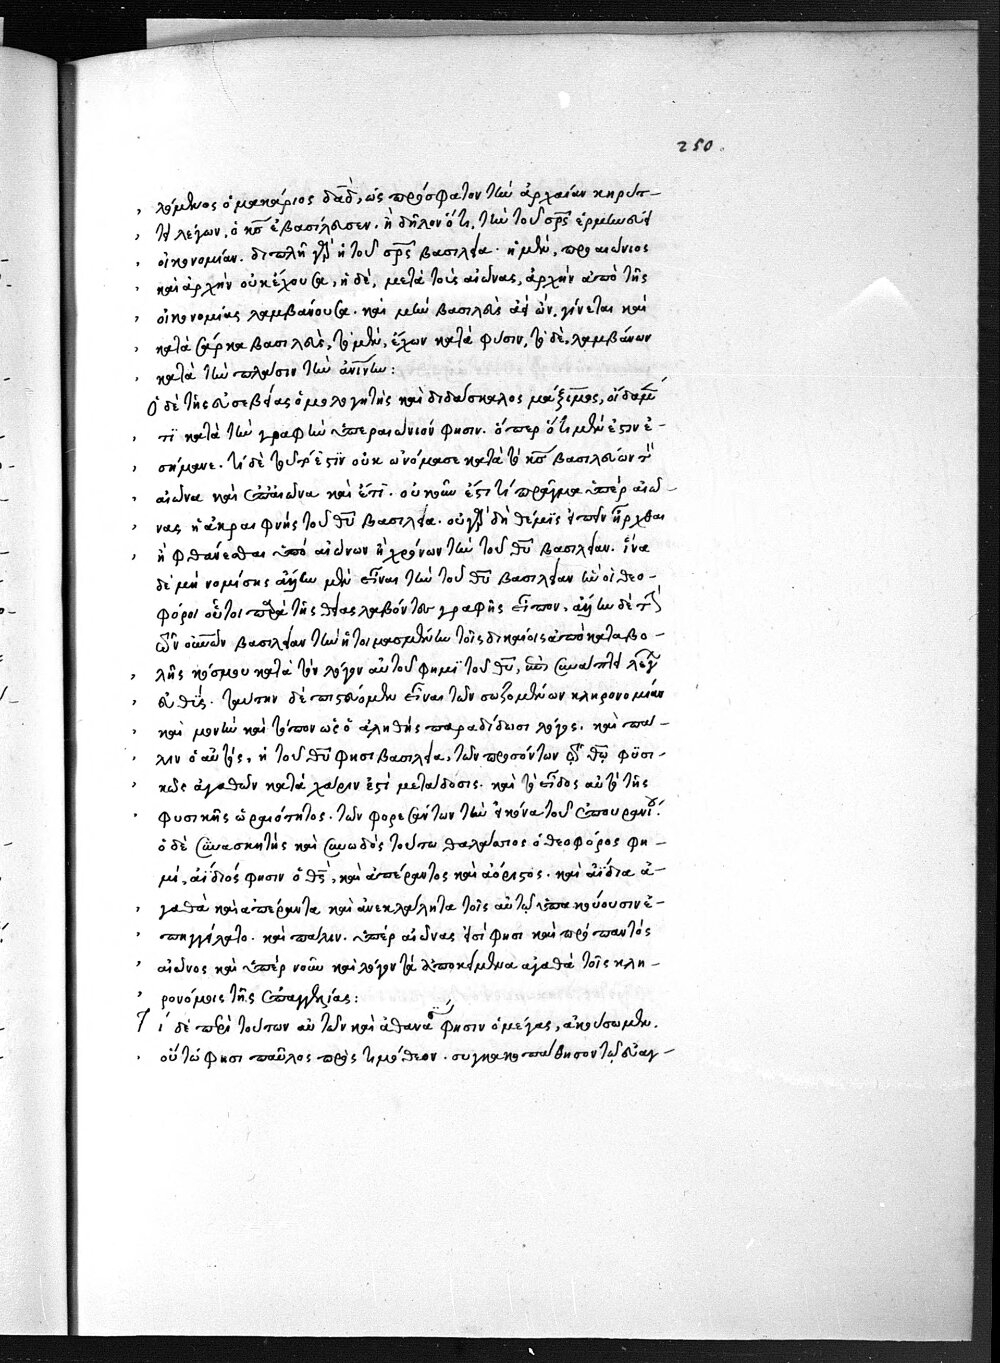 250.
λόμενος ὁ μακάριος δᾱδ, ὡς πρόσφατον τὴν ἀρχαίαν κηρύτ-
τει λέγων, ὁ κς ἐβασίλευσεν. ἢ δῆλον ὅτι, τὴν τοῦ σρς ἑρμηνεύει
οἰκονομίαν. διπλῆ γὰρ ἡ τοῦ σρς βασιλεία. ἡ μὲν, προαιώνιος
καὶ ἀρχὴν οὐκ ἔχουσα, ἡ δὲ, μετὰ τοὺς αἰῶνας, ἀρχὴν ἀπὸ τῆς
οἰκονομίας λαμβάνουσα. καὶ μὴν βασιλεὺς ἀεὶ ὢν, γίνεται καὶ
κατὰ σάρκα βασιλεὺς, τὸ μὲν, ἔχων κατὰ φύσιν, τὸ δὲ, λαμβάνων
κατὰ τὴν πλάσιν τῶν ἀνων:
Ὁ δὲ τῆς εὐσεβείας ὁμολογητὴς καὶ διδάσκαλος μάξιμος, οἶδα μέν
τι κατὰ τὴν γραφὴν ὑπεραιώνιον φησιν. ὅπερ ὅτι μὲν ἐστιν ἐ-
σήμανε. τί δὲ τοῦτό ἐστιν οὐκ ὠνόμασε κατὰ τὸ κς βασιλεύων τὸν
αἰῶνα καὶ ἐπ' αἰῶνα καὶ ἔτι. οὐκοῦν ἔστι τί πρᾶγμα ὑπὲρ αἰῶ-
νας ἡ ἀκραιφνὴς τοῦ θυ βασιλεία. οὐ γὰρ δὴ θέμις εἰπεῖν ἦρχθαι
ἢ φθάνεσθαι ὑπὸ αἰώνων ἢ χρόνων τὴν τοῦ θυ βασιλείαν. ἵνα
δὲ μὴ νομίσῃς αὐτὴν μὲν εἶναι τὴν τοῦ θυ βασιλείαν ἣν οἱ θεο-
φόροι οὗτοι παρὰ τῆς θείας λαβόντες γραφῆς εἶπον, αὐτὴν δὲ τὴν
τῶν οὐνῶν βασιλείαν τὴν ἡτοιμασμένην τοῖς δικαίοις ἀπὸ καταβο-
λῆς κόσμου κατὰ τὸν λόγον αὐτοῦ φημι τοῦ θυ, καὶ συνάπτει λέγων
εὐθύς. ταύτην δὲ πιστεύομεν εἶναι τῶν σωζομένων κληρονομίαν
καὶ μονὴν καὶ τόπον ὡς ὁ ἀληθὴς παραδίδωσι λόγος. καὶ πά-
λιν ὁ αὐτός, ἡ τοῦ θυ φησι βασιλεία, τῶν προσόντων τῷ θω φυσι-
κῶς ἀγαθῶν κατὰ χάριν ἐστὶ μετάδοσις. καὶ τὸ εἶδος αὐτὸ τῆς
φυσικῆς ὡραιότητος. τῶν φορεσάντων τὴν εἰκόνα τοῦ ἐπουρανίου.
ὁ δὲ συνασκητὴς καὶ συνωδὸς τούτω θαλάσσιος ὁ θεοφόρος φη-
μι, ἀΐδιός φησιν ὁ θς, καὶ ἀπέραντος καὶ ἀόριστος. καὶ ἀΐδια ἀ-
γαθὰ καὶ ἀπέραντα καὶ ἀνεκλάλητα τοῖς αὐτῷ ὑπακούουσιν ἐ-
πηγγείλατο. καὶ πάλιν. ὑπὲρ αἰῶνας εἰσί φησι καὶ πρὸ παντὸς
αἰῶνος καὶ ὑπὲρ νοῦν καὶ λόγον τὰ ἀποκείμενα ἀγαθὰ τοῖς κλη-
ρονόμοις τῆς ἐπαγγελίας:
Τί δὲ περὶ τούτων αὐτῶν καὶ ἀθανάσιος φησιν ὁ μέγας, ἀκούσωμεν.
οὕτω φησὶ παῦλος πρὸς τιμόθεον. συγκακοπάθησον τῷ εὐαγ-